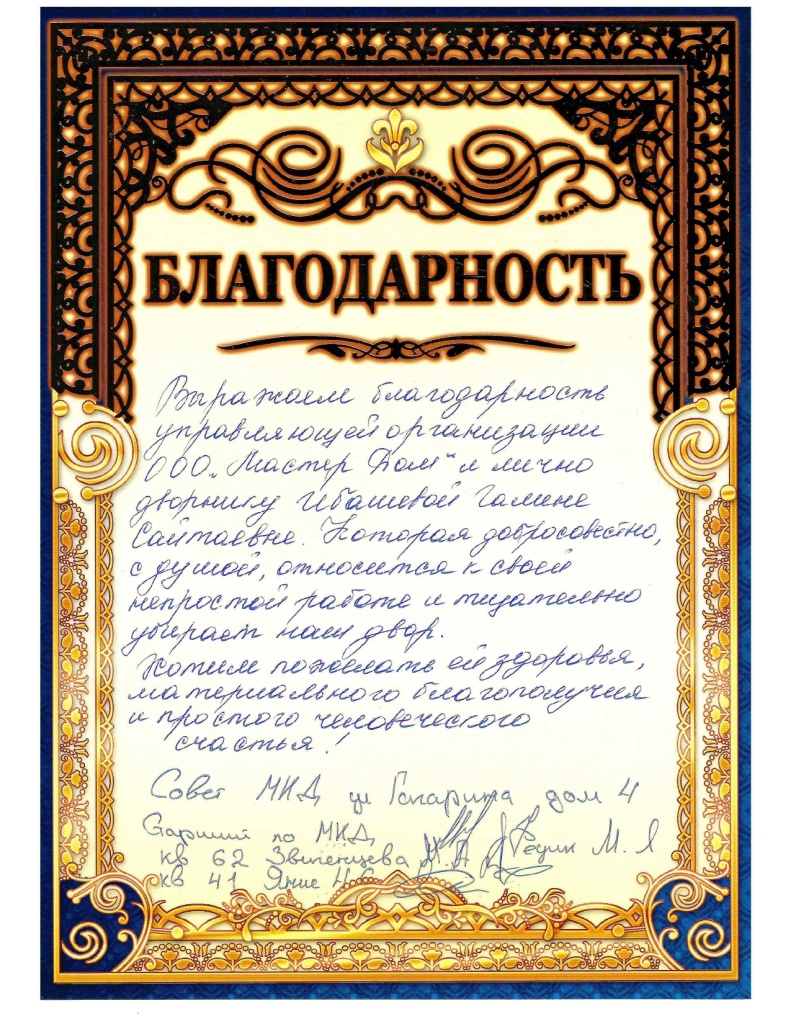 БЛАГОДАРНОСТЬ
Выражаем благодарность
управляющей организации
ООО „Мастер Дом" и лично
дворнику Ибашевой Галине
Саитаевне. Которая добросовестно,
с душой, относится к своей
непростой работе и тщательно
убирает наш двор.
Хотим пожелать ей здоровья,
материального благополучия
и простого человеческого
счастья!
Совет МКД ул Гагарина дом 4
Старший по МКД М. Я
кв 62
кв 41